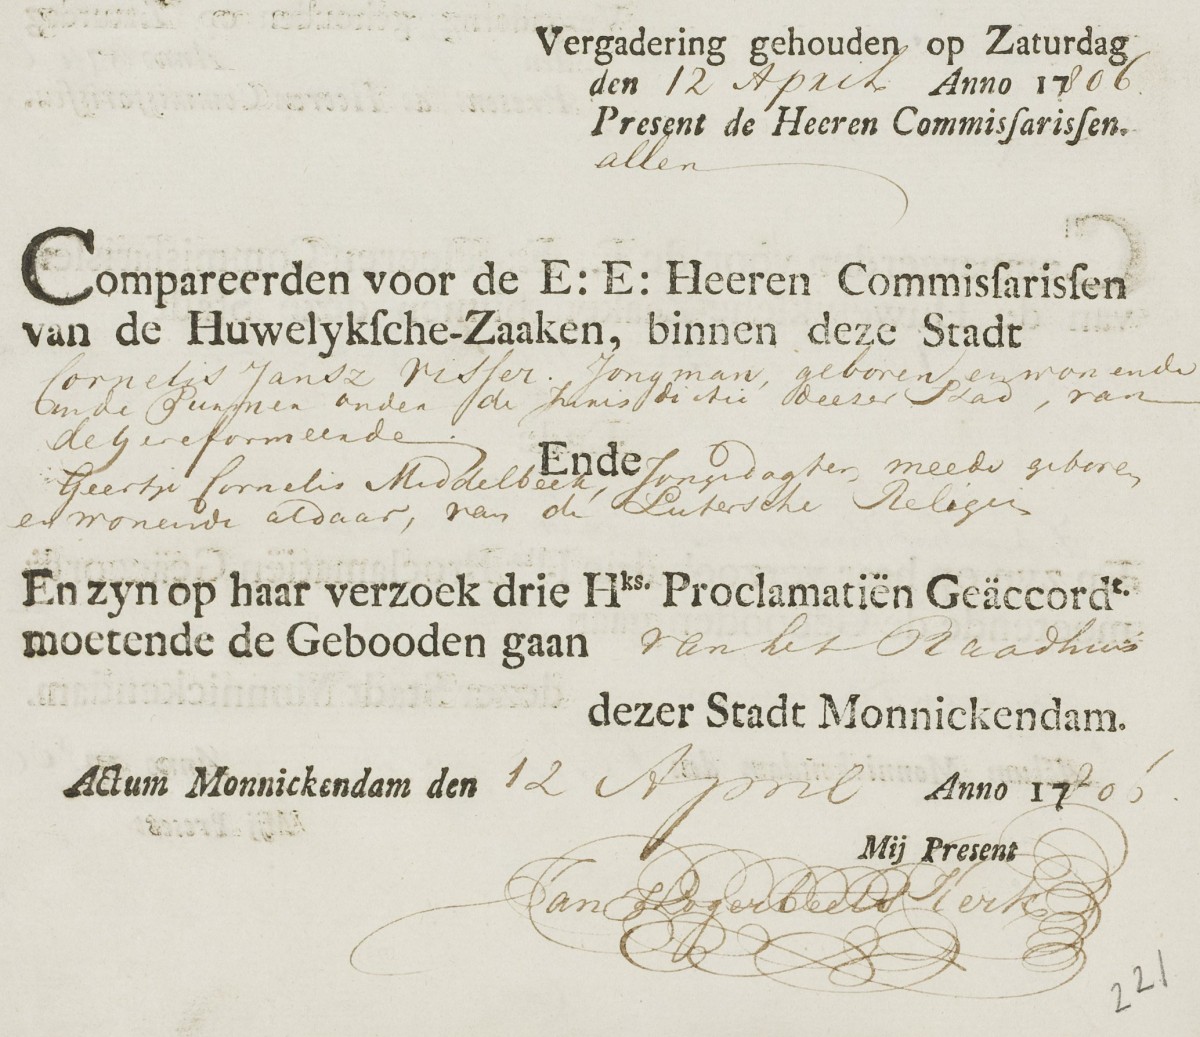 Vergadering gehouden op Zaturdag
den 12 April Anno 1806.
Present de Heeren Commisſarisſen.
allen
Compareerden voor de E: E: Heeren Commisſarisſen
van de Huwelykſche-Zaaken, binnen deze Stadt
Cornelis Jansz Visser. Jongman, geboren en wonende
in de Purmer onder de Jurisdictie deezer Stad, van
de Gereformeerde
Ende
Geertje Cornelis Middelbeek, Jongedogter, meede geboren
en wonende aldaar, van de Lutersche Religie
En zyn op haar verzoek drie Hks. Proclamatiën Geäccordt.
moetende de Gebooden gaan van het Raadhuis
dezer Stadt Monnickendam.
Actum Monnickendam den 12 April Anno 1806.
Mij Present
Jan Hogerbeets Kerk
221